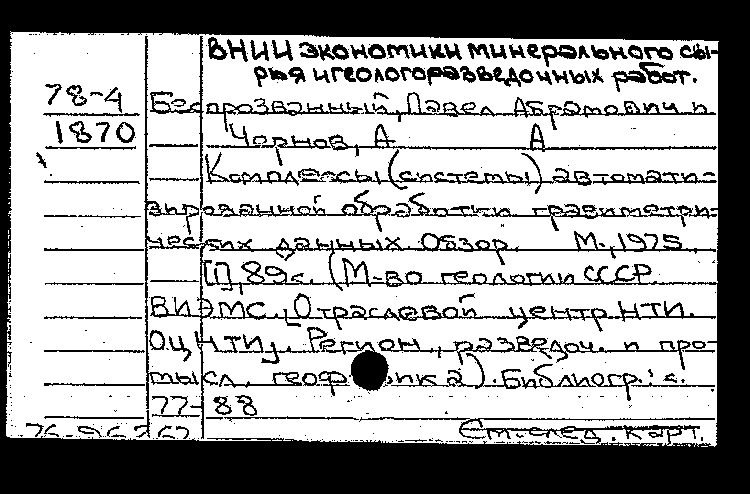 ВНИИ экономики минерального сы-
рья и геологоразведочных работ.
78-4
Беспрозванный, Павел Абрамович и
1870
Чернов, А А
Комплексы (системы) автомати-
зированной обработки гравиметри-
ческих данных. Обзор. М., 1975.
[1], 89 с. (М-во геологии СССР.
ВИЭМС. Отраслевой центр НТИ.
ОЦНТИ. Регион., разведоч. и про-
мысл. геофизика). Библиогр.: с.
77-88
См. след. карт.